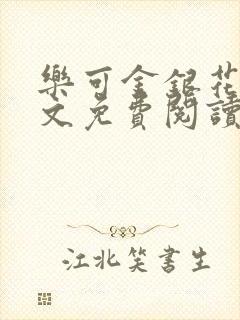 樂可金銀花
文免費閱讀
江北笑書生